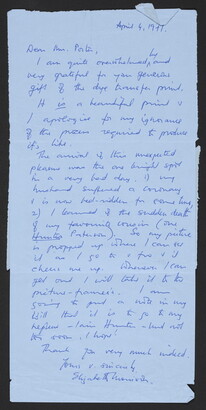 April 4, 1977.
Dear Mr. Porter,
I am quite overwhelmed by, and
very grateful for your generous
gift of the dye transfer print.
It is a beautiful print &
I apologize for my ignorance
of the process required to produce
its like.
The arrival of this unexpected
pleasure was the one bright spot
in a very bad day. 1) my
husband suffered a coronary
& is now bed-ridden for some time,
2) I learned of the sudden death
of my favourite cousin (one
Paterson). So my picture
is propped up where I can see
it as I go to & fro & it
cheers me up. Whenever I can
get out I will take it to the
picture-framers. I am
going to put a note in my
Will that it is to go to my
nephew - Iain Hunter - but not
too soon, I hope!
Thank you very much indeed.
Yours v. sincerely,
Elizabeth